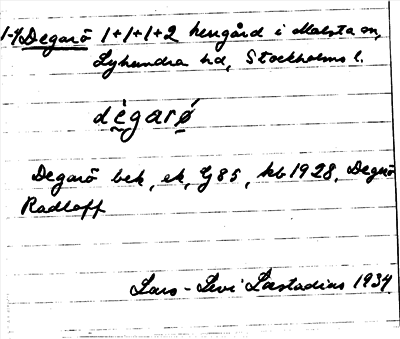 1-4 Degarö 1+1+1+2 herrgård i Malsta sn,
Lyhundra hd, Stockholms l.
dègarǿ
Degarö bek, ek, G85, kb 1928, Degerö
Radloff
Lars-Levi Læstadius 1934